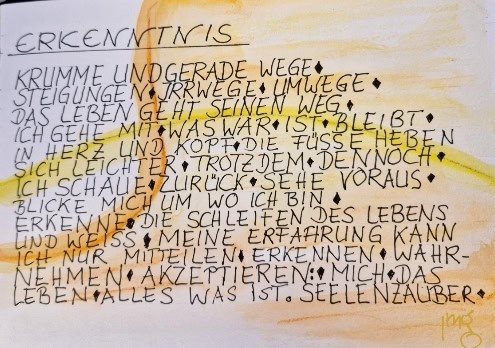 ERKENNTNIS
KRUMME UND GERADE WEGE♦
STEIGUNGEN♦IRRWEGE♦UMWEGE♦
DAS LEBEN GEHT SEINEN WEG♦
ICH GEHE MIT♦WAS WAR♦IST♦BLEIBT♦
IN HERZ UND KOPF♦DIE FÜSSE HEBEN
SICH LEICHTER♦TROTZDEM♦DENNOCH♦
ICH SCHAUE♦ZURÜCK♦SEHE VORAUS♦
BLICKE MICH UM WO ICH BIN♦
ERKENNE♦DIE SCHLEIFEN DES LEBENS
UND WEISS♦MEINE ERFAHRUNG KANN
ICH NUR MITTEILEN♦ERKENNEN♦WAHR-
NEHMEN♦AKZEPTIEREN:♦MICH♦DAS
LEBEN♦ALLES WAS IST. SEELENZAUBER♦
jmg